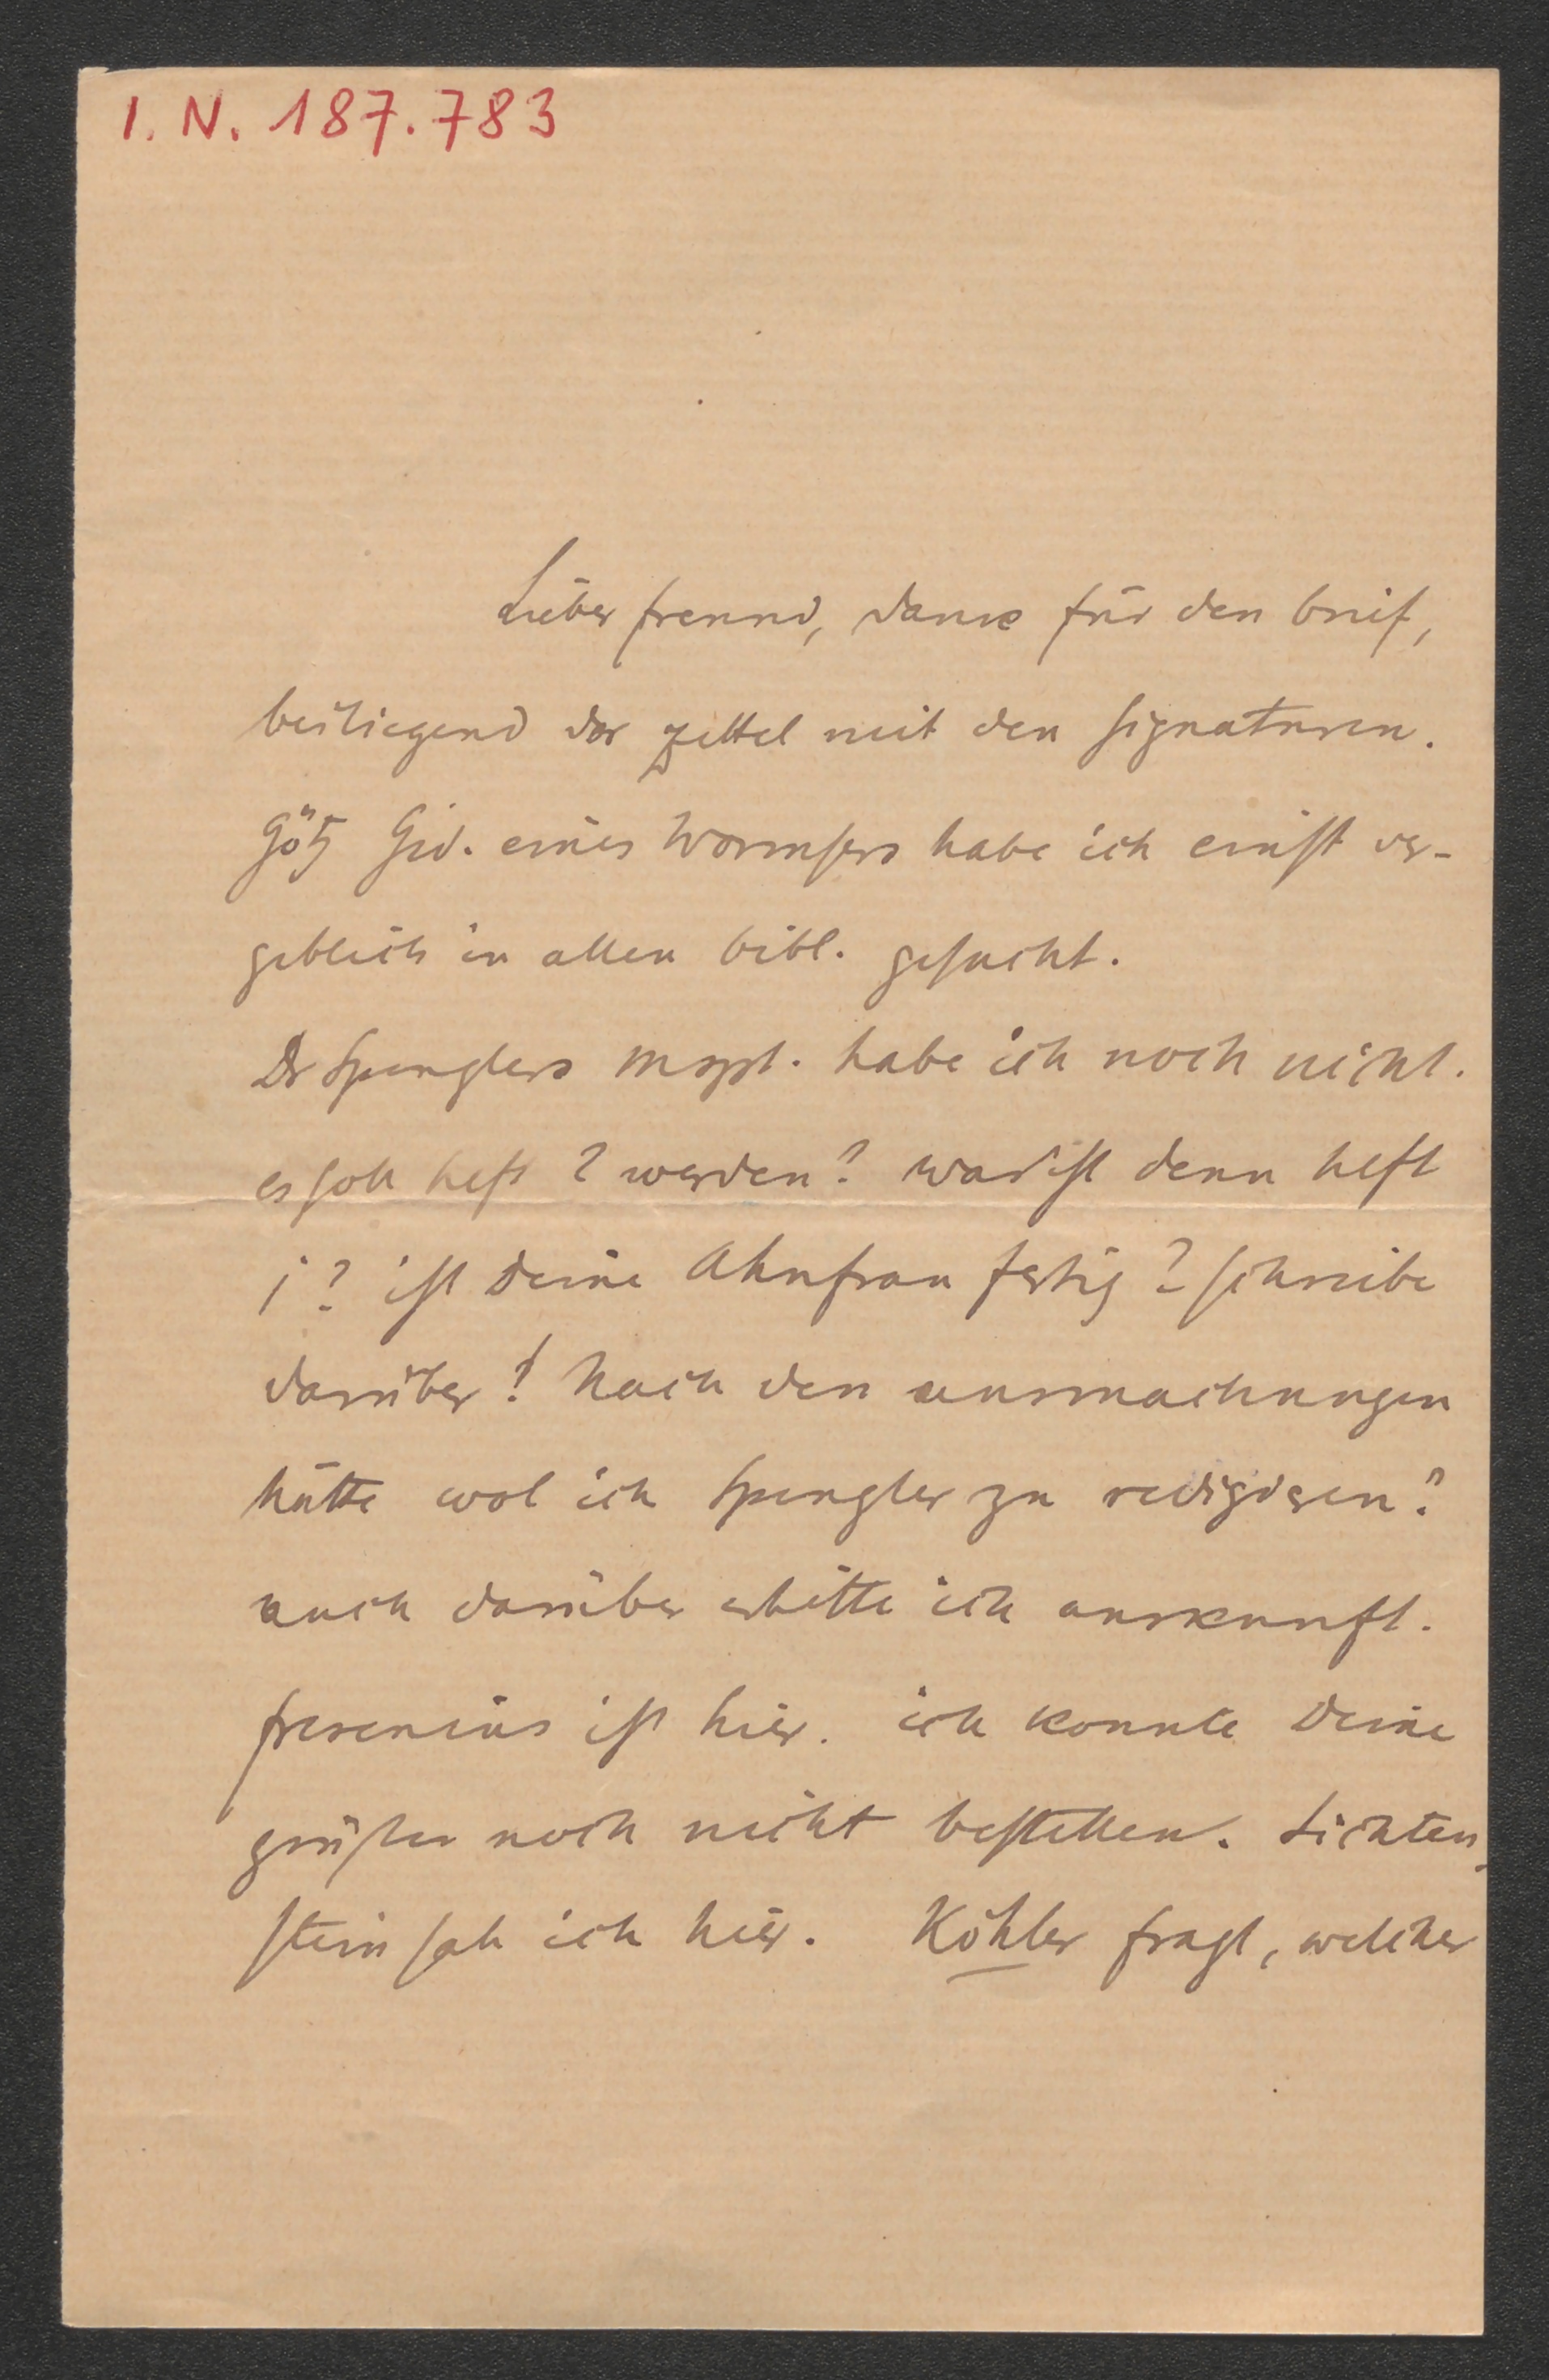 I. N. 187.783
Lieber freund, danke für den brief,
beiliegend der zettel mit den signaturen.
Götz Ged. eines Wormsers habe ich einst ver-
geblich in allen bibl. gesucht.
Dr Spenglers mspt. habe ich noch nicht.
es soll heft 2 werden? was ist denn heft
1? ist Deine Ahnfrau fertig? schreibe
darüber! Nach den ausmachungen
hätte wol ich Spengler zu redigiren?
auch darüber erbitte ich auskunft.
fresenius ist hier. ich konnte Deine
grüsse noch nicht bestellen. Lichten
stein sah ich hier. Köhler fragt, welcher